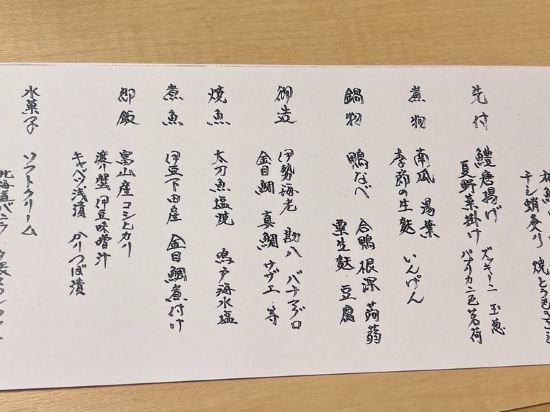 焼とうもろこし
干し蛸炙り
先付
鱧唐揚げ ズッキーニ 玉葱
夏野菜掛け パプリカ二色 茗荷
煮物
南瓜 湯葉 いんげん
季節の生麩
鍋物
鴨なべ 合鴨 根深 蒟蒻
粟生麩・豆腐
御造
伊勢海老 勘八 バチマグロ
金目鯛 真鯛 サザエ 等
焼魚
太刀魚塩焼 鳴戸海水塩
煮魚
伊豆下田産 金目鯛煮付け
御飯
富山産コシヒカリ
渡り蟹 伊豆味噌汁
キャベツ浅漬 かりつぼ漬
水菓子
ソフトクリーム
北海道バニラ